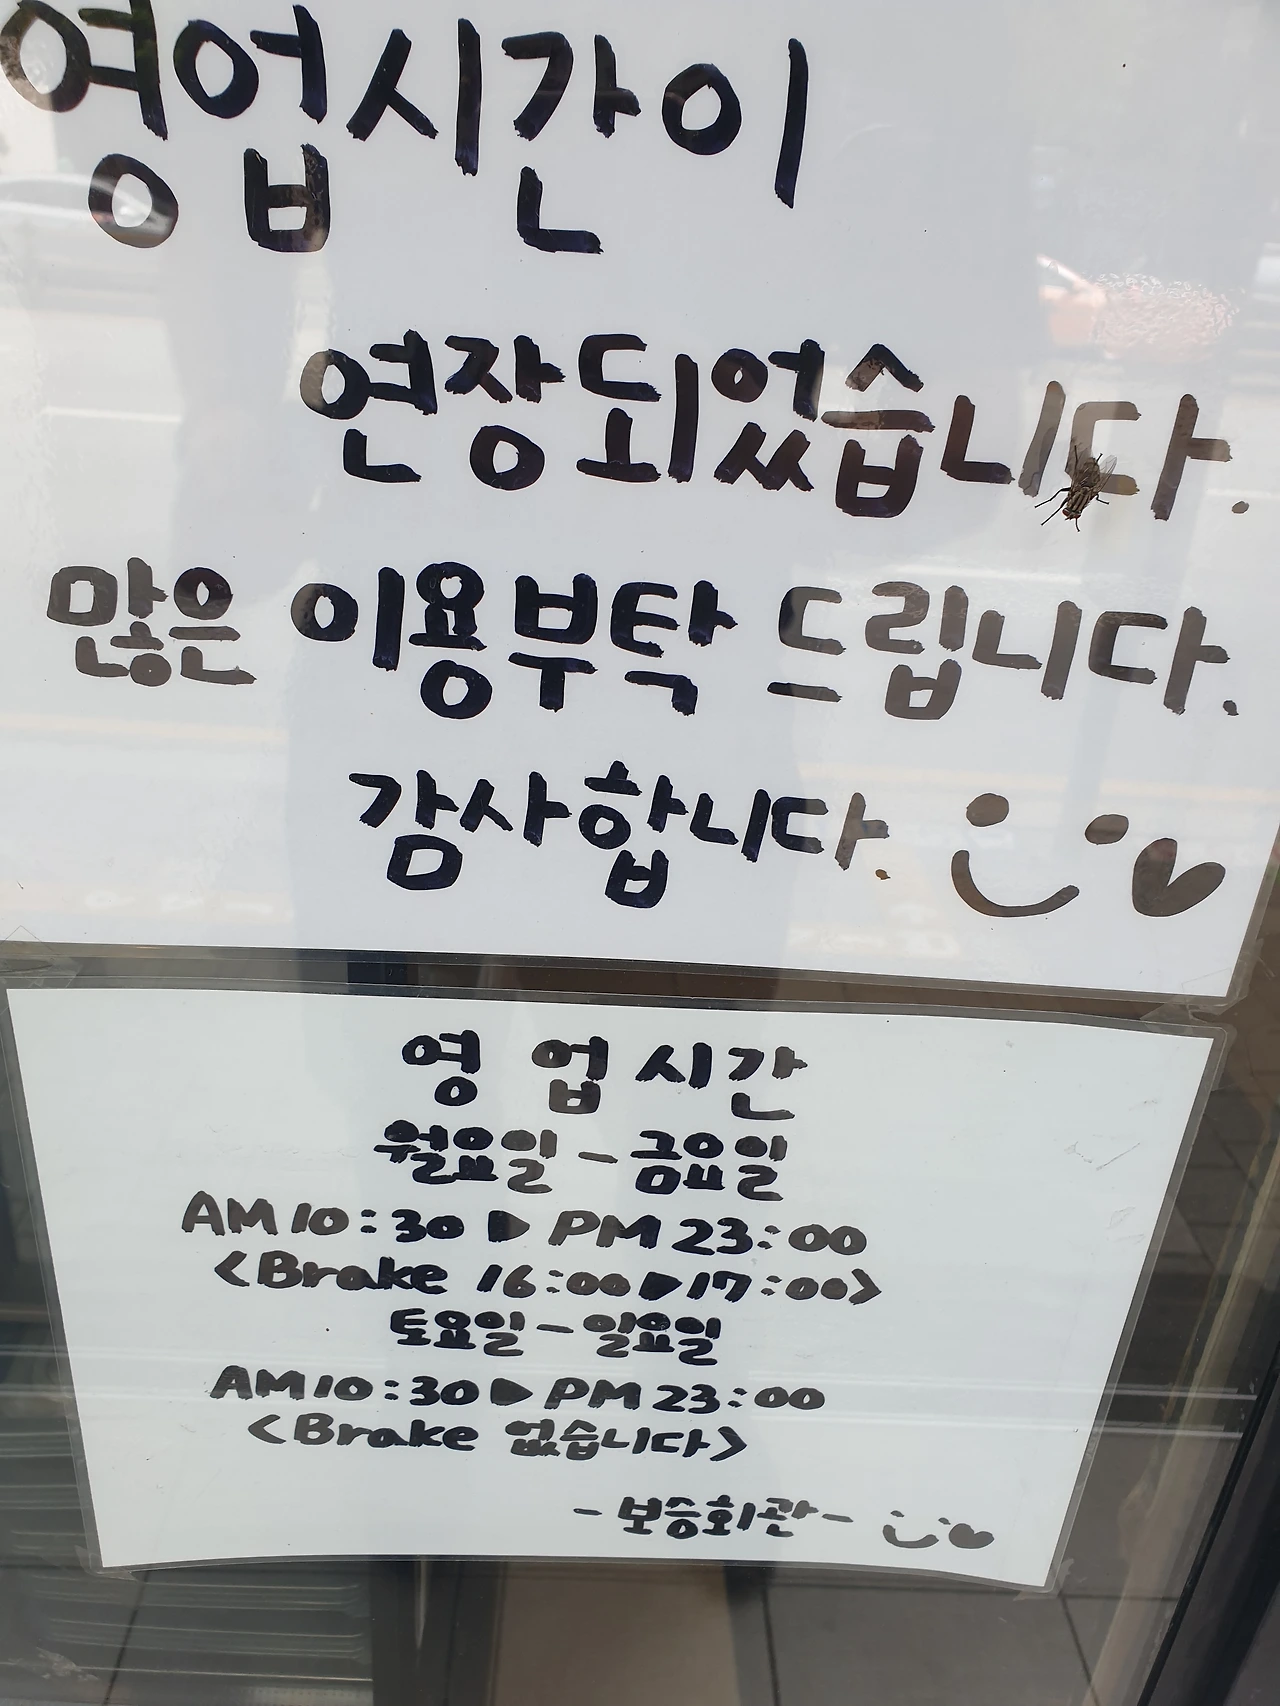 영업시간이
연장되었습니다.
많은 이용부탁 드립니다.
감사합니다.
영 업시간
월요일 - 금요일
AM 10:30 ▶ PM 23:00
<Brake 16:00▶17:00>
토요일 - 일요일
AM 10:30 ▶ PM 23:00
<Brake 없습니다>
- 보승회관 -